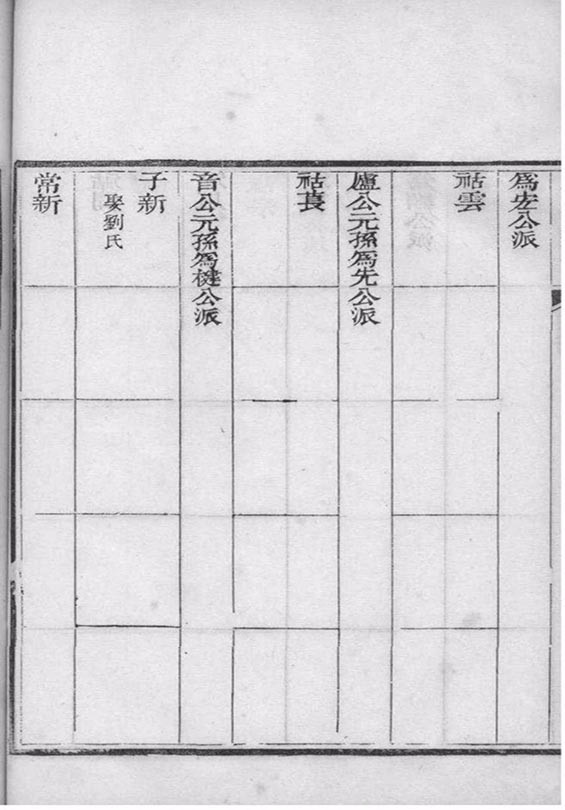 爲宏公派
祜雲
廬公元孫爲先公派
祜萇
音公元孫爲楗公派
子新
娶劉氏
常新